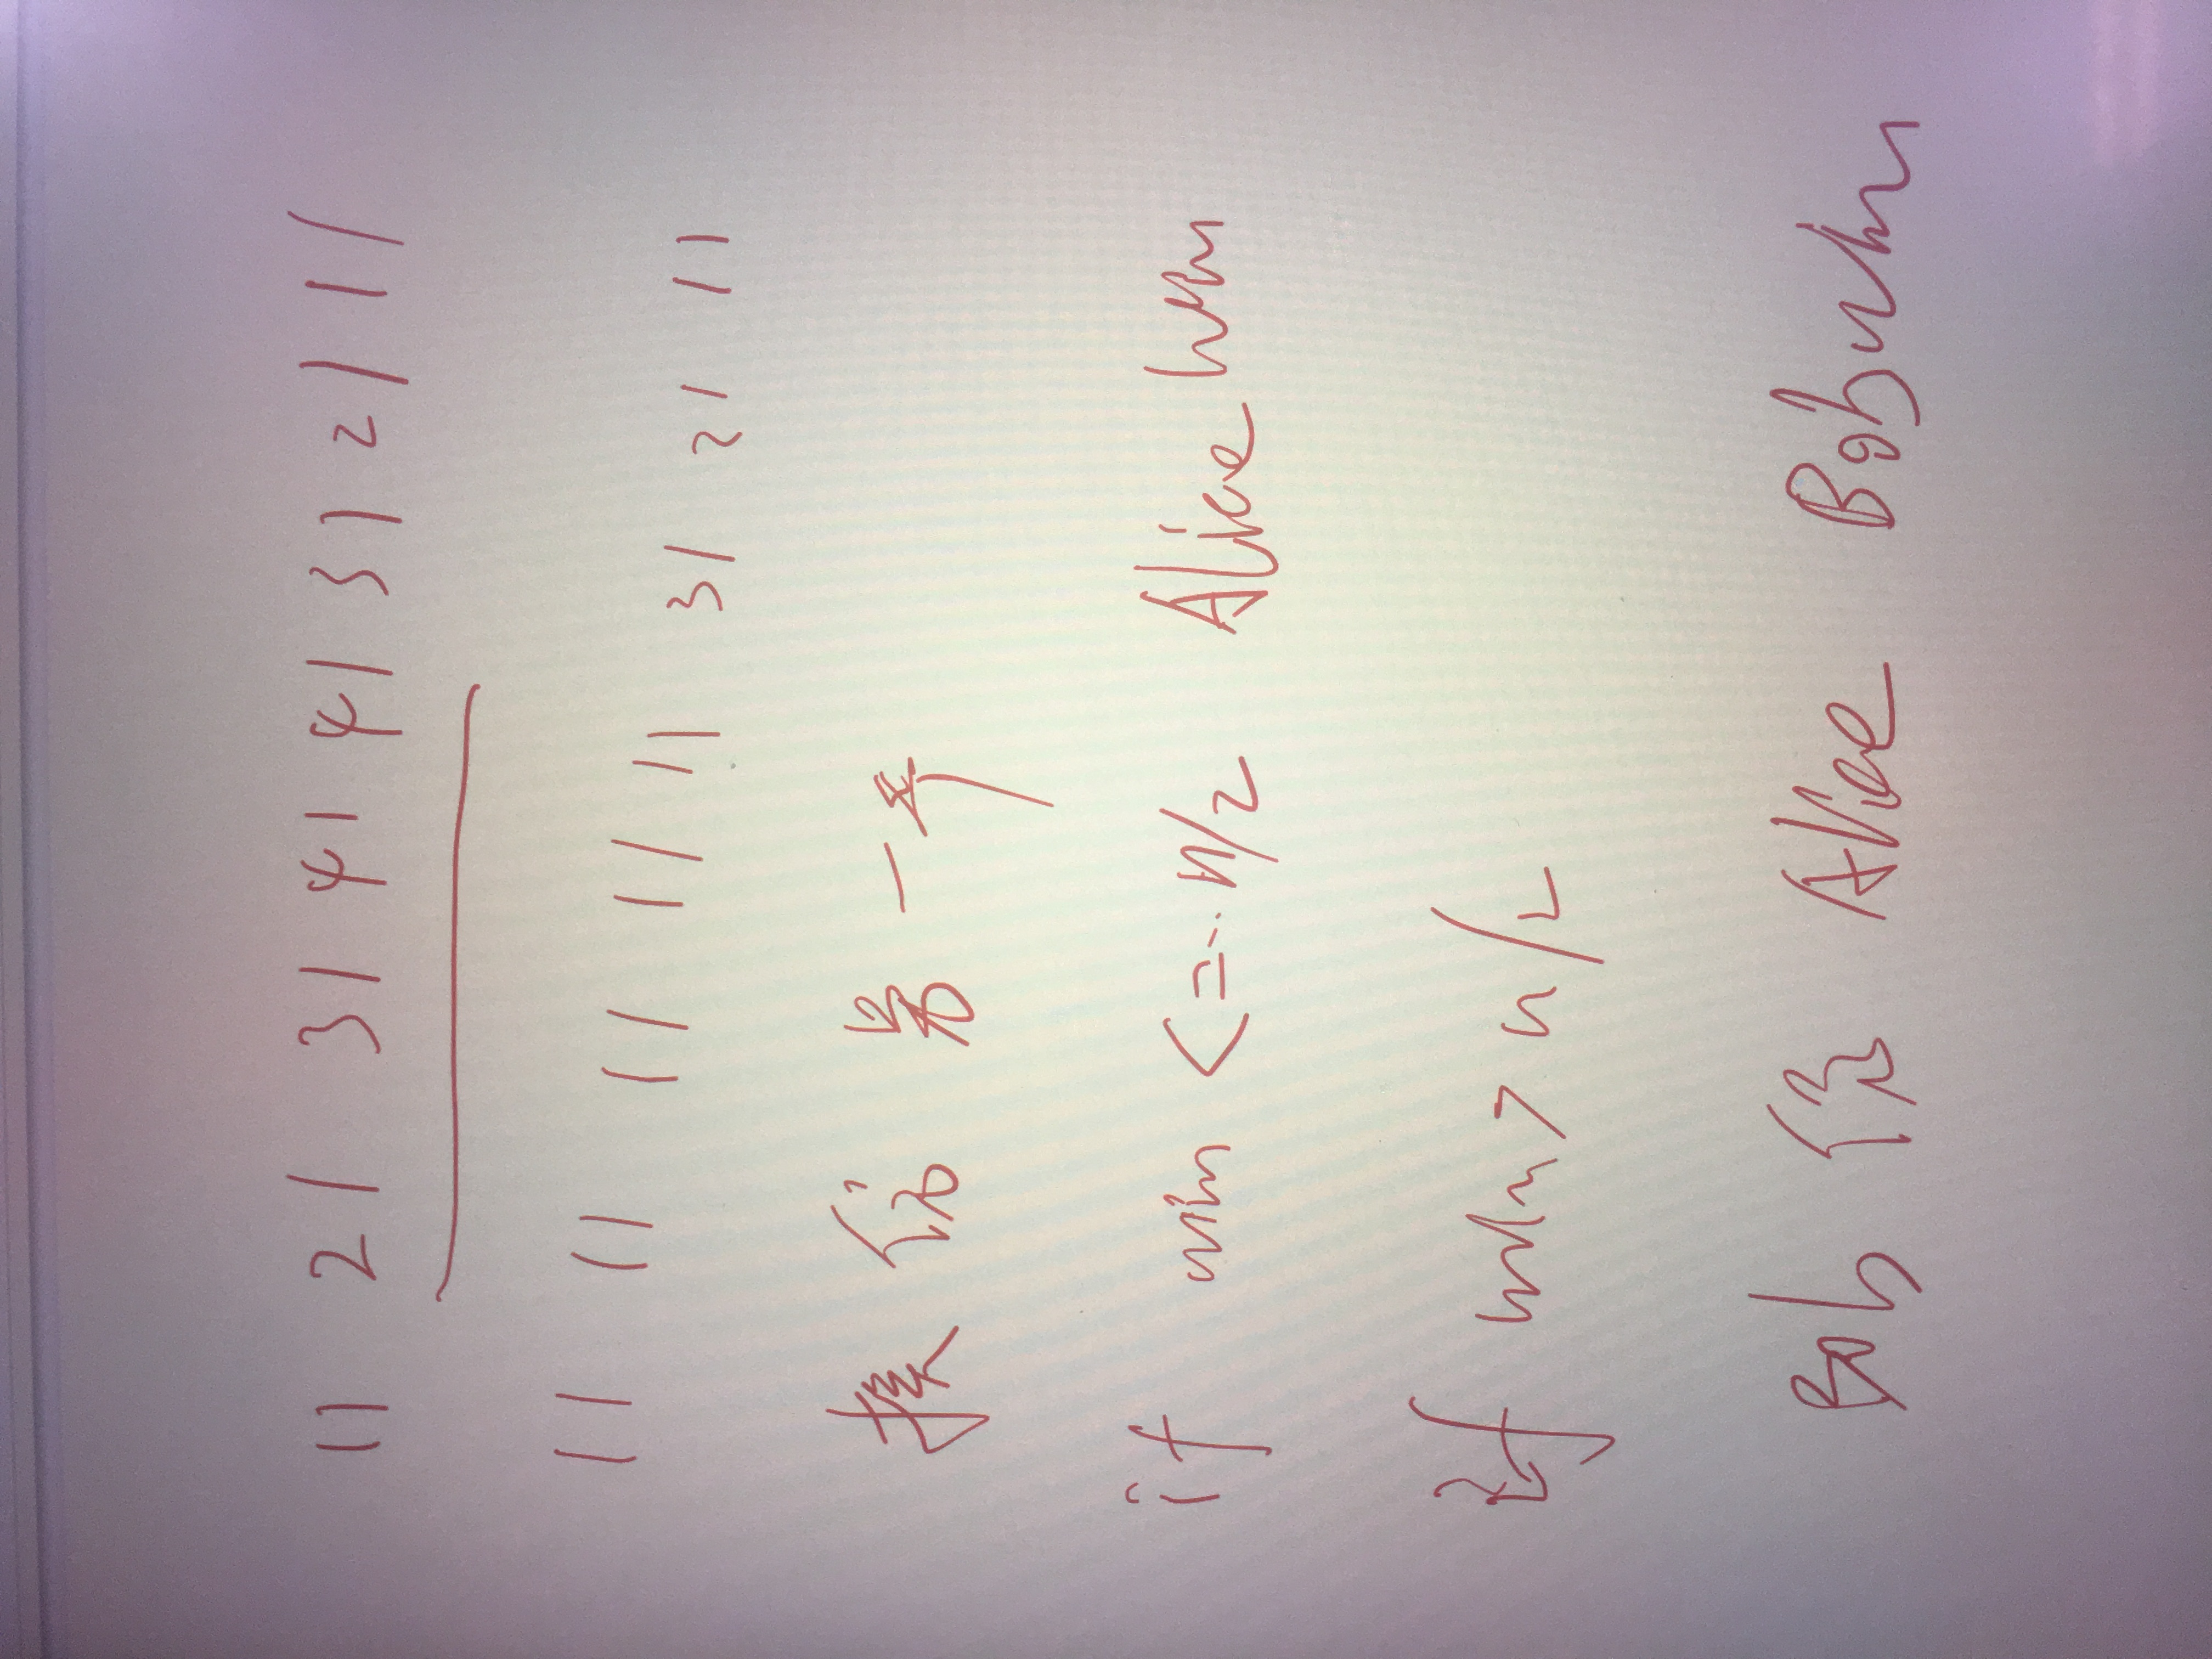 11 21 31 41 41 31 21 11
11 11 11 11 11 31 21 11
另一
if min <= n/2 Alice win
if min > n/2
Bob Alice Bob win